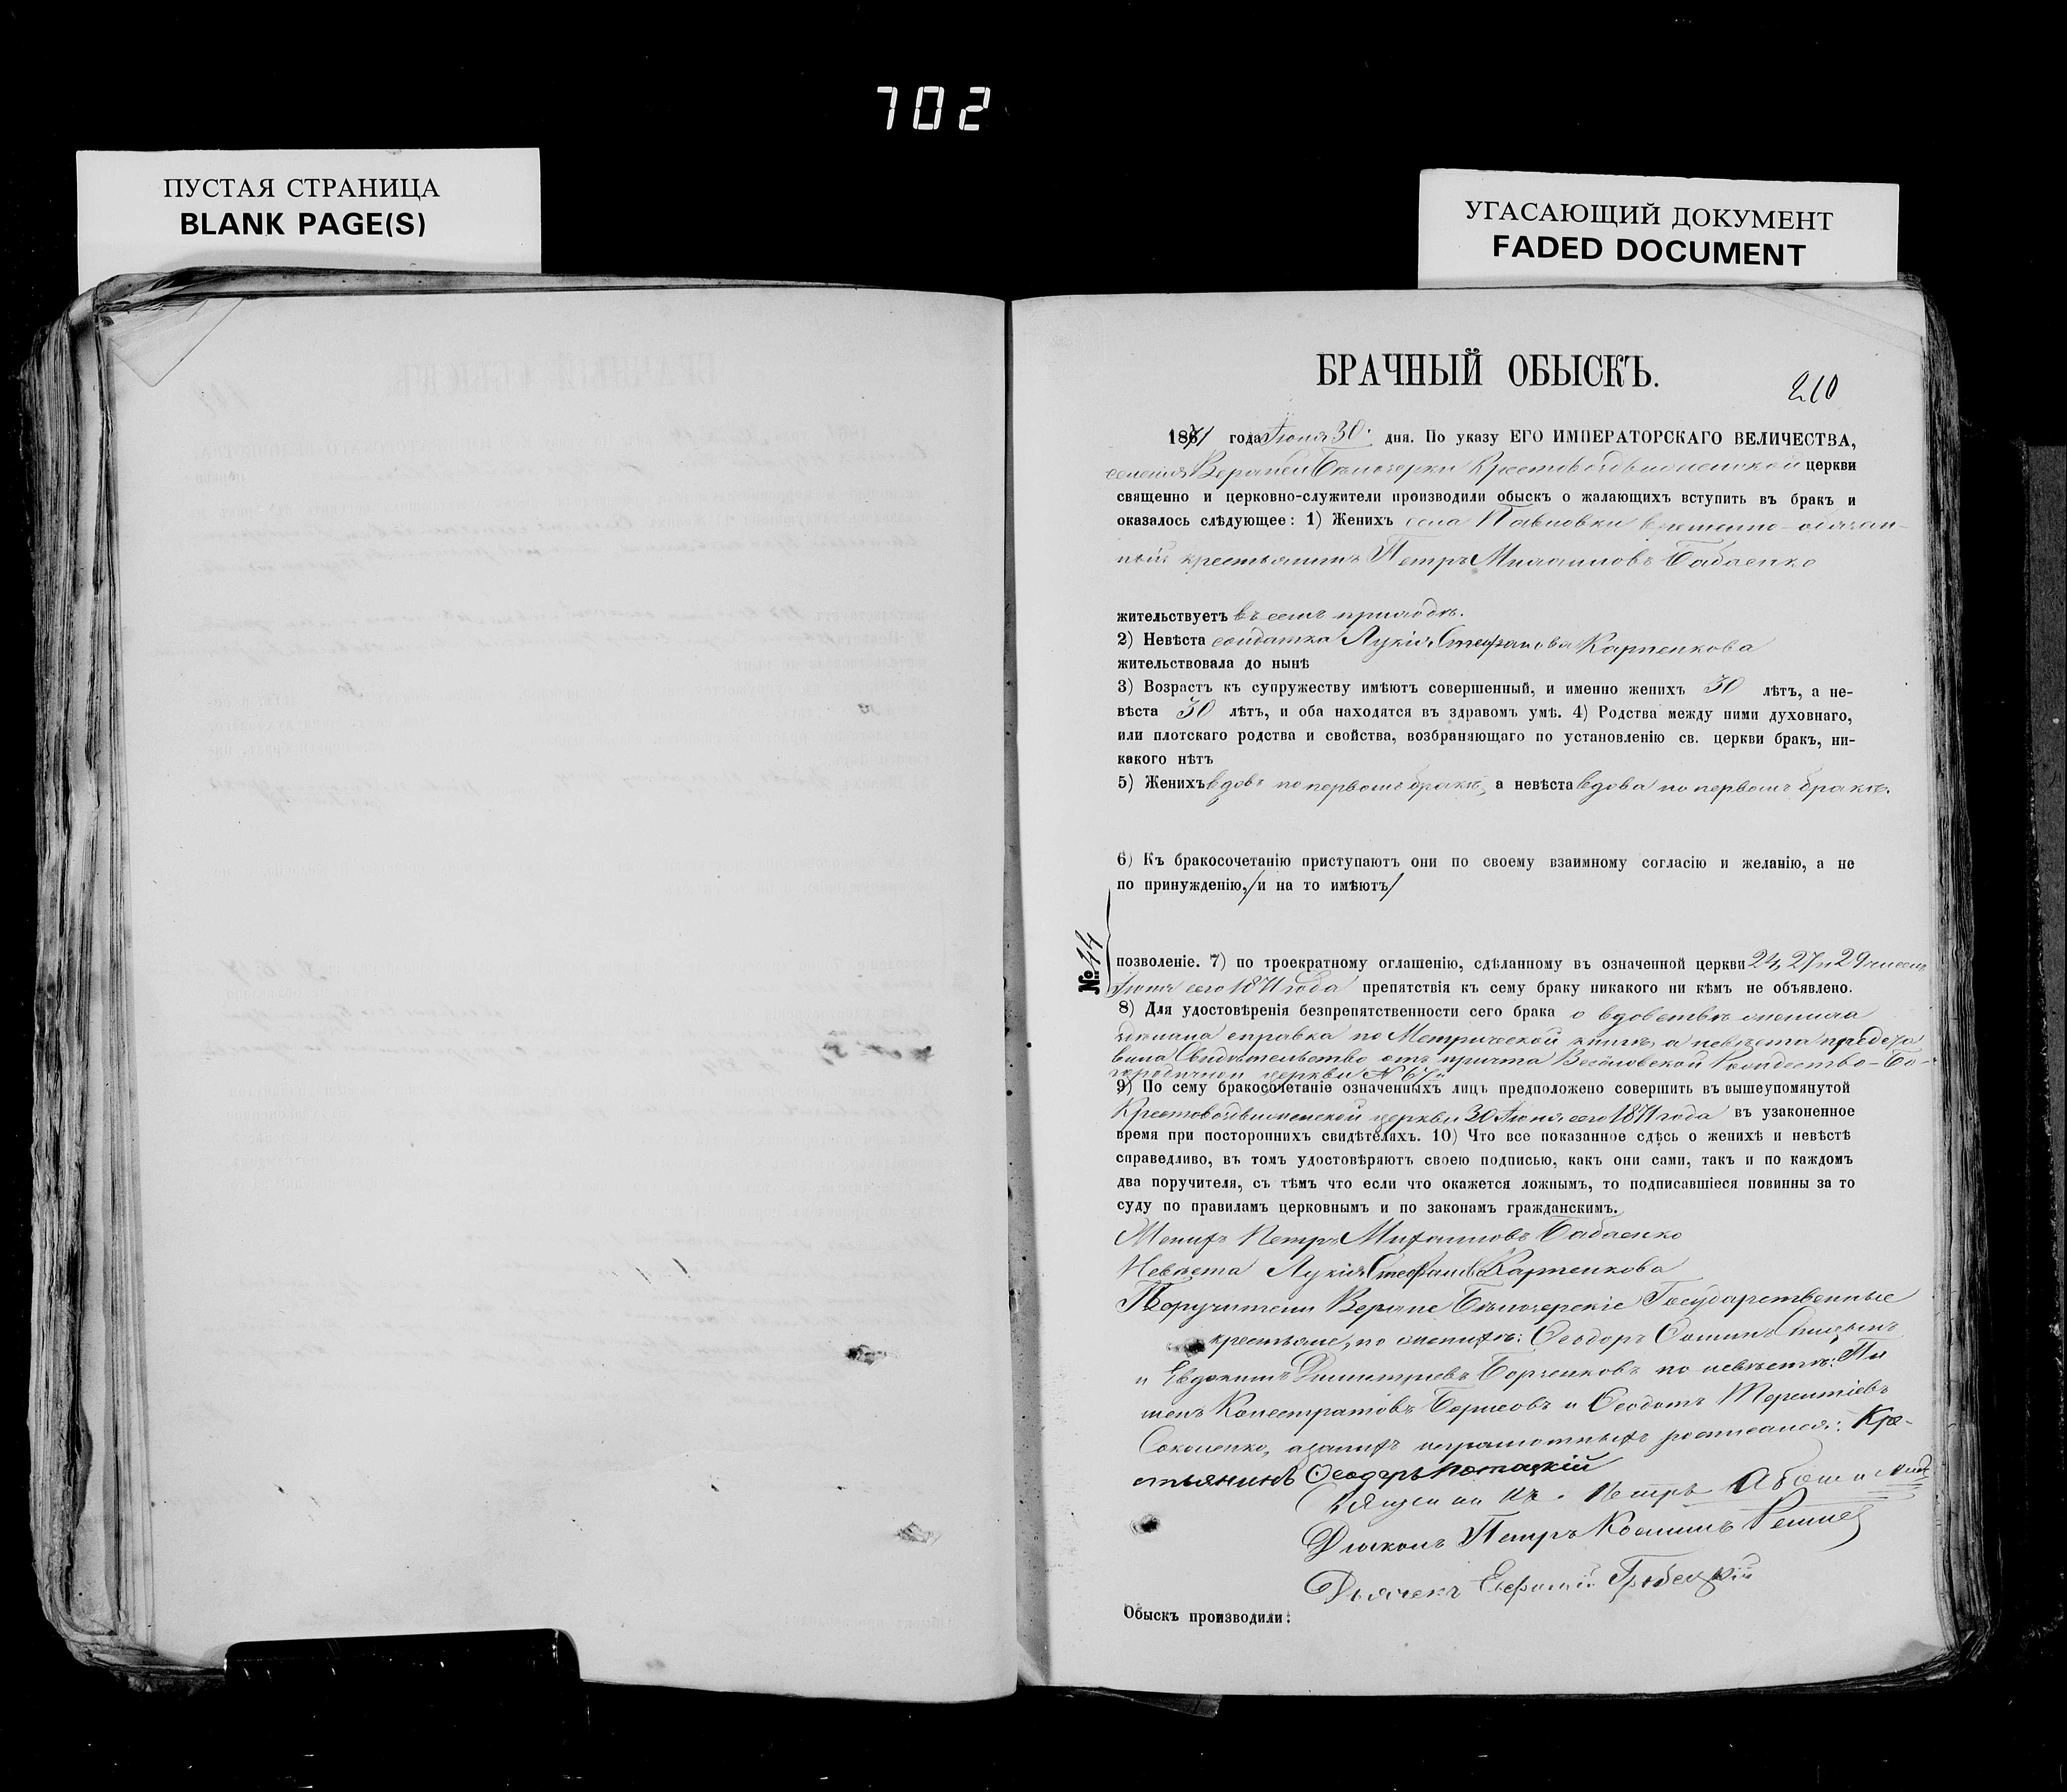 702
ПУСТАЯ СТРАНИЦА
BLANK PAGE(S)
УГАСАЮЩИЙ ДОКУМЕНТ
FADED DOCUMENT
БРАЧНЫЙ ОБЫСКЪ.
210
1871 года Іюня 30. дня. По указу ЕГО ИМПЕРАТОРСКАГО ВЕЛИЧЕСТВА,
селенія Верхней Бѣлозерки Крестовоздвиженской церкви
священно и церковно-служители производили обыскъ о жалающихъ вступить въ бракъ и
оказалось слѣдующее: 1) Женихъ села Павловки временно-обязан-
ный крестьянинъ Петръ Михаиловъ Бабаенко
жительствуетъ въ семъ приходѣ.
2) Невѣста солдатка Лукія Стефанова Карпенкова
жительствовала до нынѣ
3) Возрастъ къ супружеству имѣютъ совершенный, и именно женихъ 30 лѣтъ, а не-
вѣста 30 лѣтъ, и оба находятся въ здравомъ умѣ. 4) Родства между ними духовнаго,
или плотскаго родства и свойства, возбраняющаго по установленію св. церкви бракъ, ни-
какого нѣтъ
5) Женихъ вдовъ по первомъ бракѣ, а невѣста вдова по первомъ бракѣ.
6) Къ бракосочетанію приступаютъ они по своему взаимному согласію и желанію, а не
по принужденію, /и на то имѣютъ/
№ 44
позволеніе. 7) по троекратному оглашенію, сдѣланному въ означенной церкви 24, 27 и 29 чиселъ
Іюня сего 1871 года препятствія къ сему браку никакого ни кѣмъ не объявлено.
8) Для удостовѣренія безпрепятственности сего брака о вдовствѣ жениха
сдѣлана справка по Метрической книгѣ, а невѣста предъя
вила Свидѣтельство отъ причта Веселовской Рождество-Бо-
городичной церкви № 67й
9) По сему бракосочетаніе означенныхъ лицъ предположено совершить въ вышеупомянутой
Крестовоздвиженской церкви 30 Іюня сего 1871 года въ узаконенное
время при посторонихъ свидѣтеляхъ. 10) Что все показанное сдѣсь о женихѣ и невѣстѣ
справедливо, въ томъ удостовѣряютъ своею подписью, какъ они сами, такъ и по каждомъ
два поручителя, съ тѣмъ что если что окажется ложнымъ, то подписавшіеся повинны за то
суду по правиламъ церковнымъ и по законамъ гражданскимъ.
Женихъ Петръ Михаиловъ Бабаенко
Невѣста Лукія Стефанова Карпенкова
Поручители Верхне Бѣлозерскіе Государственные
крестьяне, по женихѣ: Ѳеодоръ Ѳоминъ
и Евдокимъ Димитріевъ Борченковъ по невѣстѣ: Пи
менъ Каллистратовъ Борисовъ и Ѳеодотъ Терентіевъ
Соколенко, а за нихъ неграмотныхъ росписался: Кре-
стьянинъ Ѳеодоръ Потоцкій
Священникъ Петръ
Діаконъ Петръ Косминъ
Дьячекъ Гребецкій
Обыскъ производили: